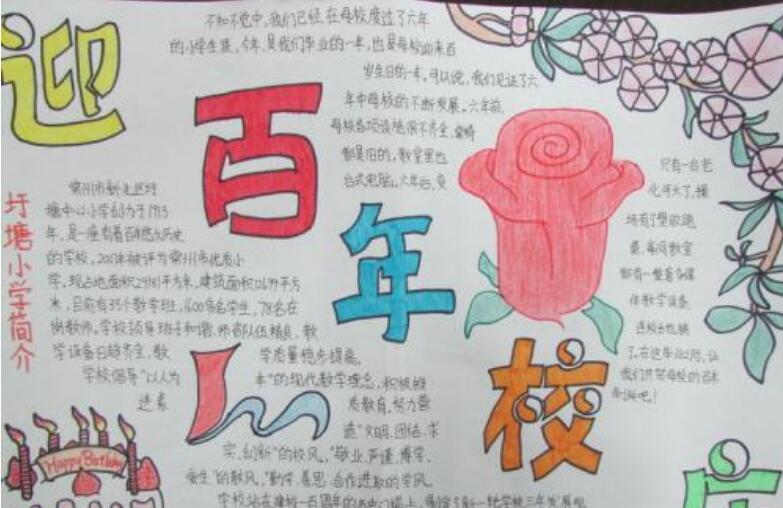 迎
百
年
校
不知不觉中,我们已经在母校度过了六年
的小学生涯,今年,是我们毕业的一年,也是母校迎来百
岁生日的一年。可以说,我们见证了六
年中母校的不断发展。六年前,
母校各项设施很不齐全,桌椅
都是旧的,教室里也
只有一台老
台式电脑。六年后,变
化可大了,操
场有了塑胶跑
道,每间教室
都有一整套多媒
体教学设备,
连校台也换
了。在这毕业之际,让
我们共贺母校的百年
华诞吧!
圩塘小学简介
常州市新北区圩
塘中心小学创办于1913
年,是一座有着百年悠久历史
的学校,2001年被评为常州市优质小
学,现占地面积29181平方米,建筑面积
米,目前有35个教学班,1600多名学生,78名在
岗教师。学校领导班子和谐,师资队伍精良,教
学设备日趋齐全,教
学质量稳步提高。
学校倡导"以人为
本"的现代教学理念,积极推
进素
质教育,努力营
造"文明、团结、求
实、创新"的校风,"敬业、严谨、博学、
爱生"的教风,"勤学、善思、合作进取的学风。
学校站在建校一百周年的
Happy Birthday